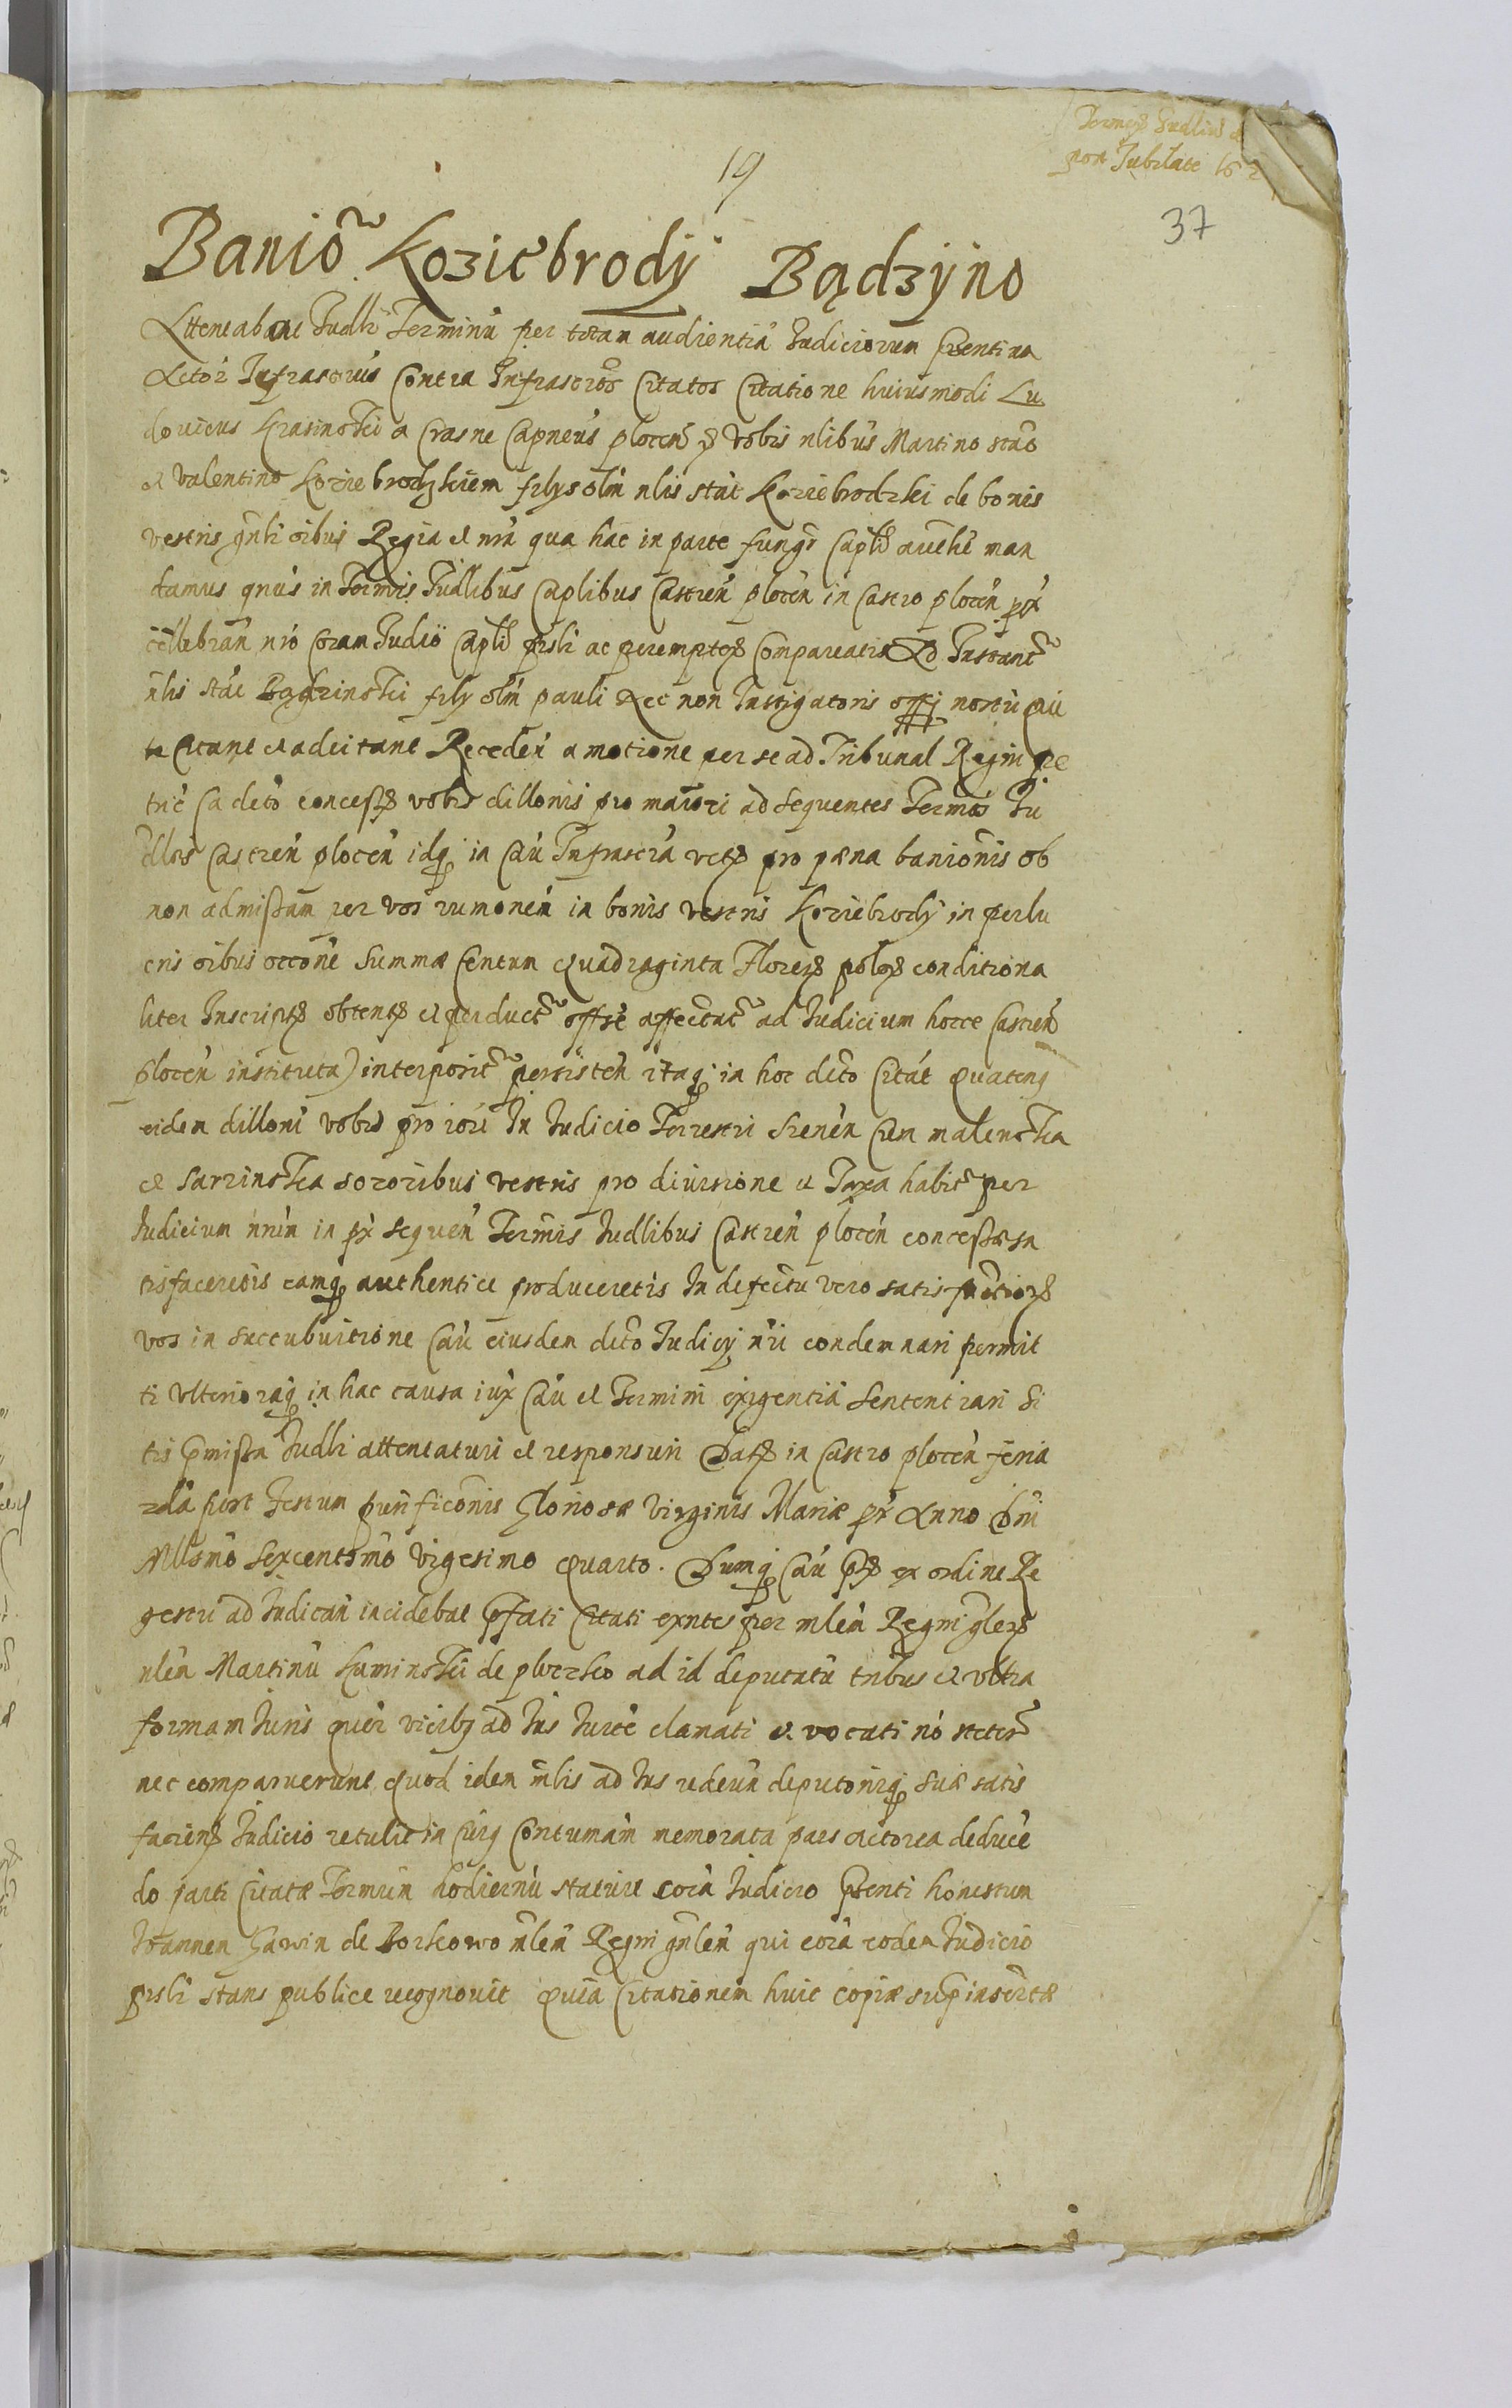 Termin Iudliu
post Jubilate 162
19
37
Banio Koziebrody Bądzyno
Attentabat Iudlr Terminu per totam audientia Iudiciorum pnentiu
Actor Infrascrius Contra Infrascros Citatos Citatione huiusmodi Lu
dovicus Krasinski a Crasne Capneus plocen vobis nlibus Martino stao
et Valentino Koziebrodzkiem filys olm nlis stai Koziebrodzki de bonis
vestris gnli oibus Regia et nra qua hac in parte fungr Capli authe man
damus qnus in Termis Iudlibus Caplibus Castren plocen in Castro plocen px
cellebran nro Coram Iudio Capli prsli ac perempte Compareatis Ad Instant
nlis stai Bądzinski fily olm pauli Nec non Instigatoris offi nostri qui
te Citant et adcitant Receden a motione per se ad Tribunal Regni pe
tric Ca deto concess vobis dillonis pro maiori ad sequentes Termos Iu
dlos Castren plocen idq in Cau Infrascra vets pro pœna banionis ob
non admissam per vos rumonem in bonis vestris Koziebrody in perlu
cris oibus occone summæ Centum Quadraginta Florens polos conditiona
liter Inscripts obtents et perduct offse affectat ad Iudicium hocce Castren
plocen instituta) interposit persisten itaq in hoc deto Citat Quateng
eidem dilloni vobis pro iori In Iudicio Terrestri Srenen Cum malenska
et Sarzinska sororibus vestris pro divisione et Taxa habit per
Iudicium nrum in px sequen Termis Iudlibus Castren plocen concessæ sa
tisfaceretis eamq authentice produceretis In defectu vero satisfactions
vos in succubuitione Cau eiusdem deto Iudicy nri condemnari permit
ti ulterioraq in hac causa iux Cau et Termini exigentia sententiari Si
tis pmissa Iudlr attentaturi et responsuri Dats in Castro plocen feria
2da post Festum purificonis Gloriosæ Virginis Mariæ px Anno Dni
Millsmo Sexcentsmo Vigesimo Quarto. Dumq Cau ex ordine Re
gestri ad Iudican incidebat pfati Citati exntes per mlem Regni glem
nlem Martinu Kuminski de ploczko ad id deputatu tribus et ultra
formam Iuris quer vicibg ad Ius Iurte clamati et vocati no steter
nec comparuerunt, Quod idem mlis ad Ius redeun deputoniq suæ satis
faciens Iudicio retulit in Cuig Contumam memorata pars actorea deduce
do parti Citatæ Termin hodiernu statuit cora Iudicio pnti honestum
Ioannem Gawin de Borkowo mlem Regni gnlem qui cora eodem Iudicio
prsli stans publice recognovit Quia Citationem huic copiæ sup insertæ